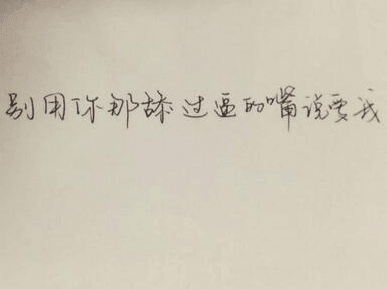 别用你那舔过逼的嘴说要我